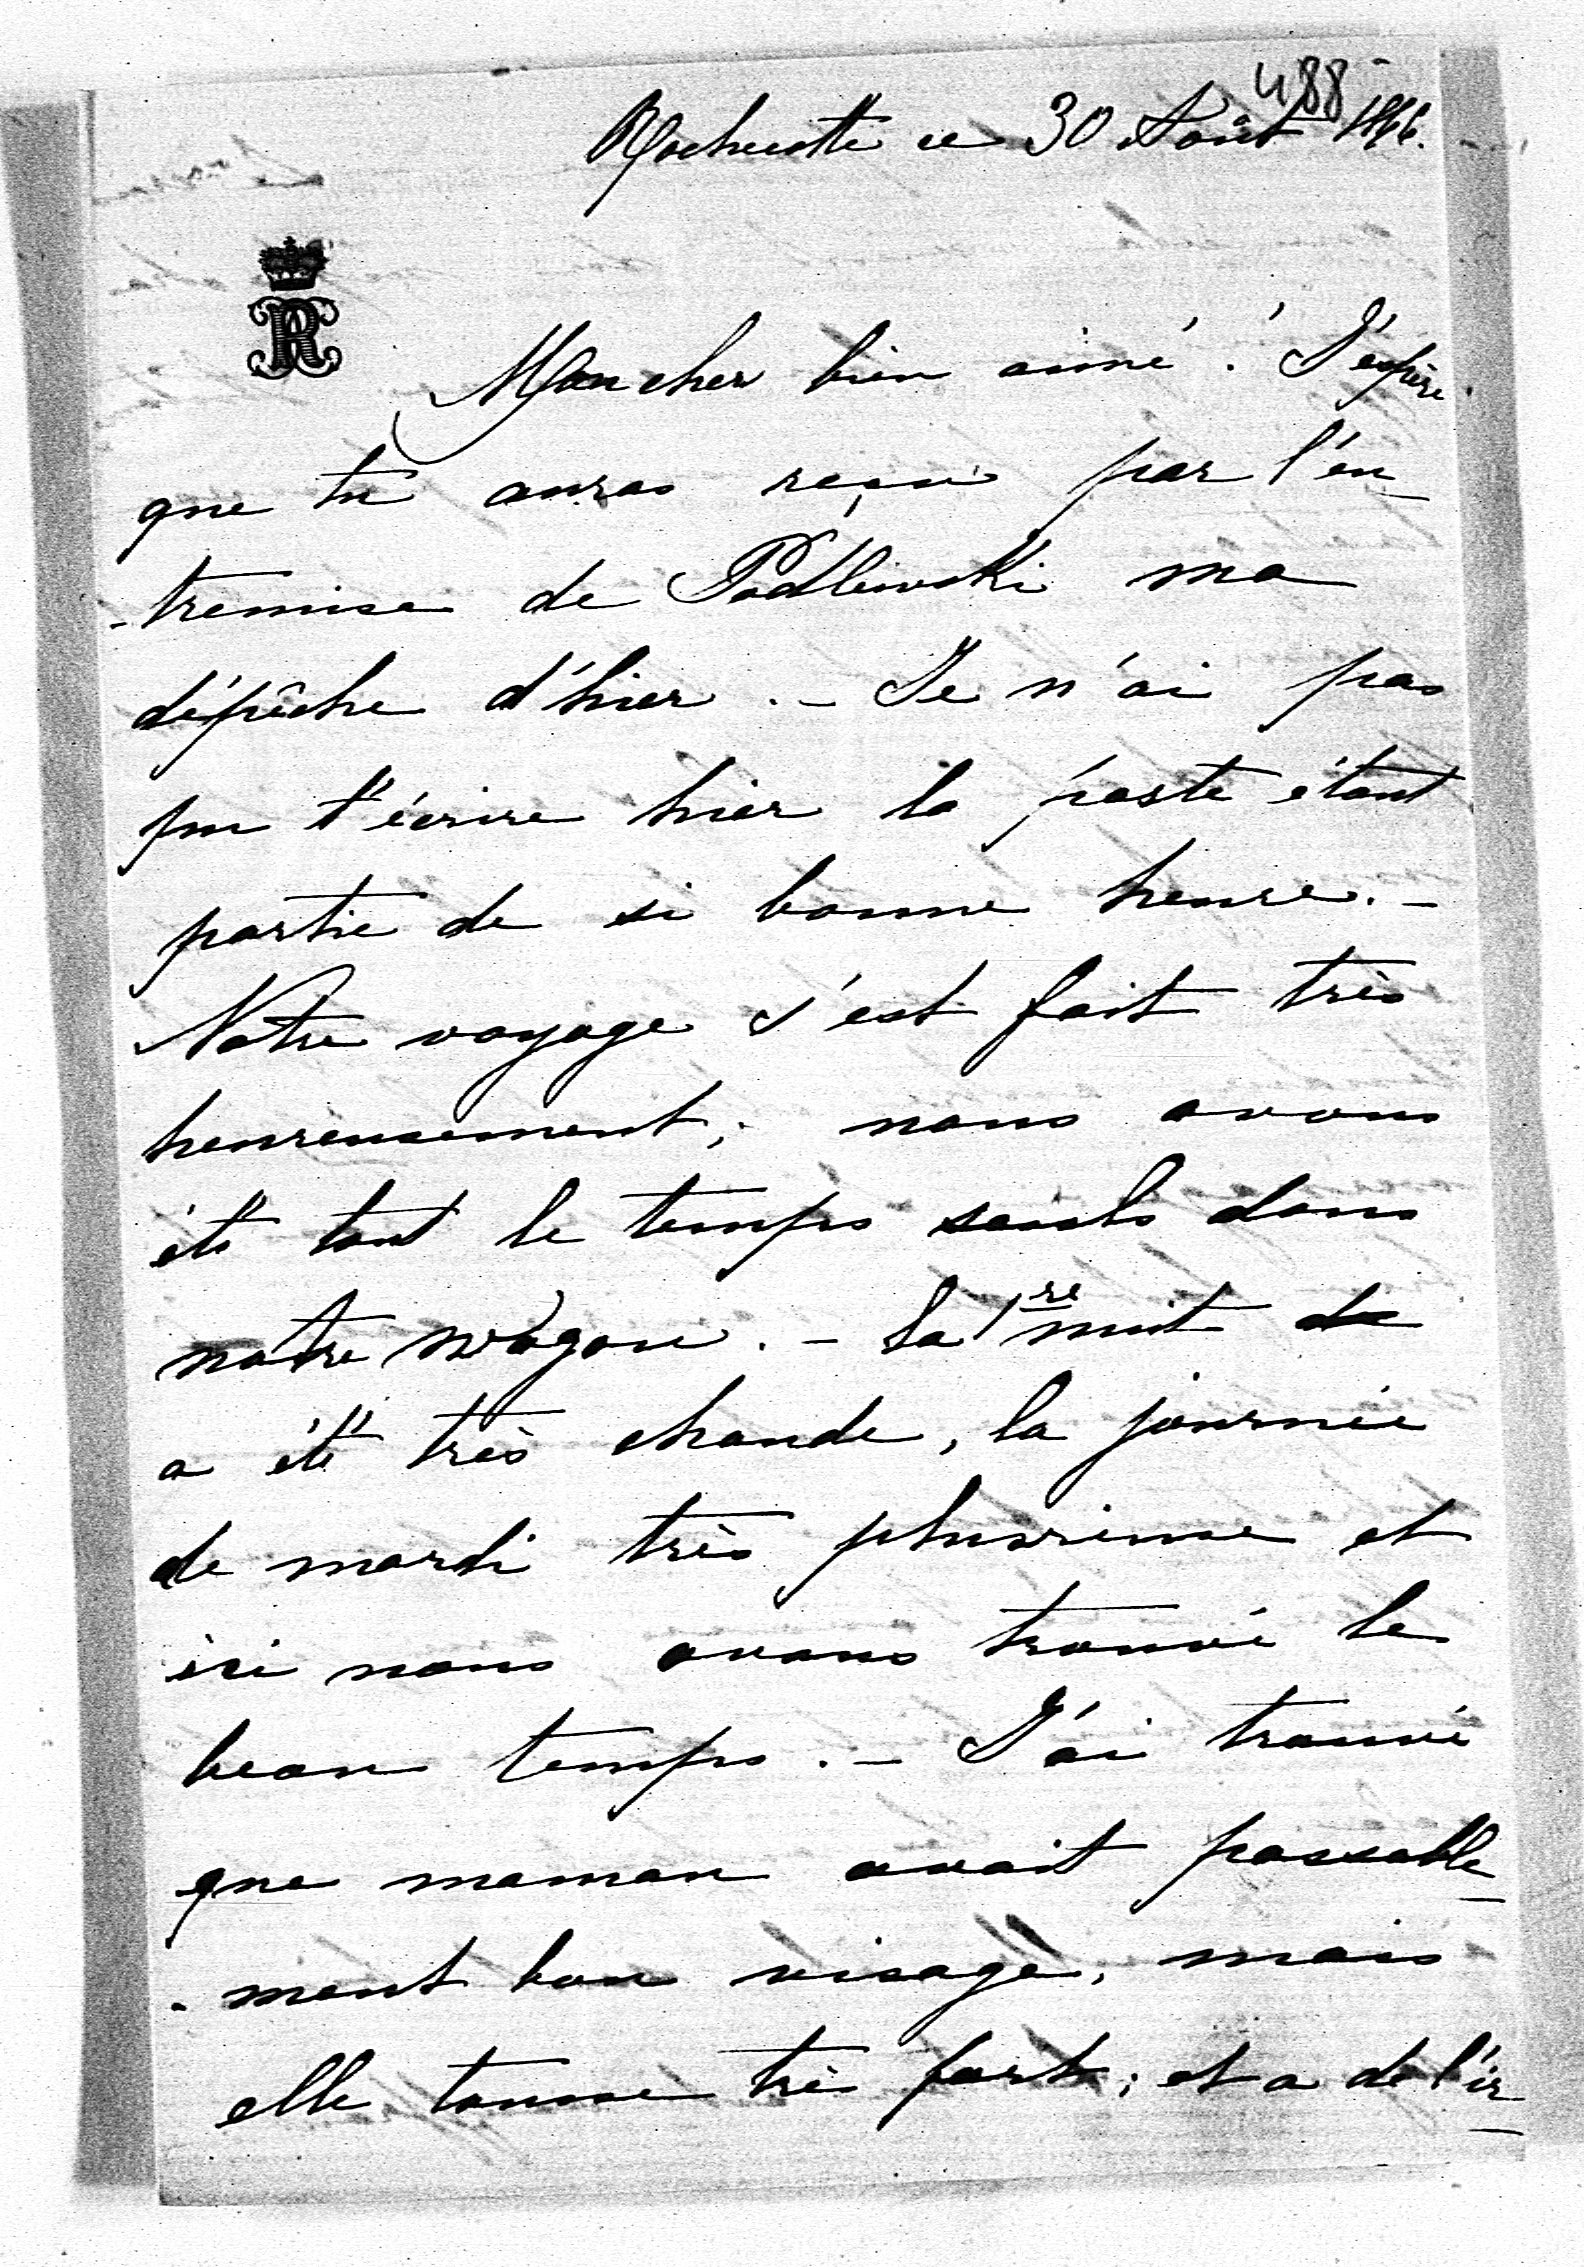 488
Rochecotte ce 30 Août 1866.
R
Mon cher bien aimé ! J'espère
que tu auras reçu par l'en
-tremise de Podlewski ma
dépêche d'hier. - Je n'ai pas
pu t'écrire hier la poste étant
partie de si bonne heure. -
Notre voyage s'est fait très
heureusement; nous avons
été tout le temps seuls dans
notre wagon. - La 1re nuit de
a été très chaude, la journée
de mardi très pluvieuse et
ici nous avons trouvé le
beau temps. - J'ai trouvé
que maman avait passable_
-ment bon visage, mais
elle tousse très fort; et a de l'ir_